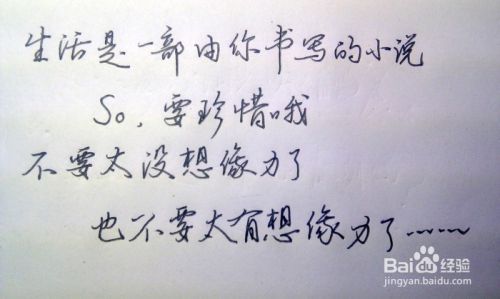 生活是一部由你书写的小说
So，要珍惜哦
不要太没想像力了
也不要太有想像力了……
Baidu经验
jingyan.baidu.com